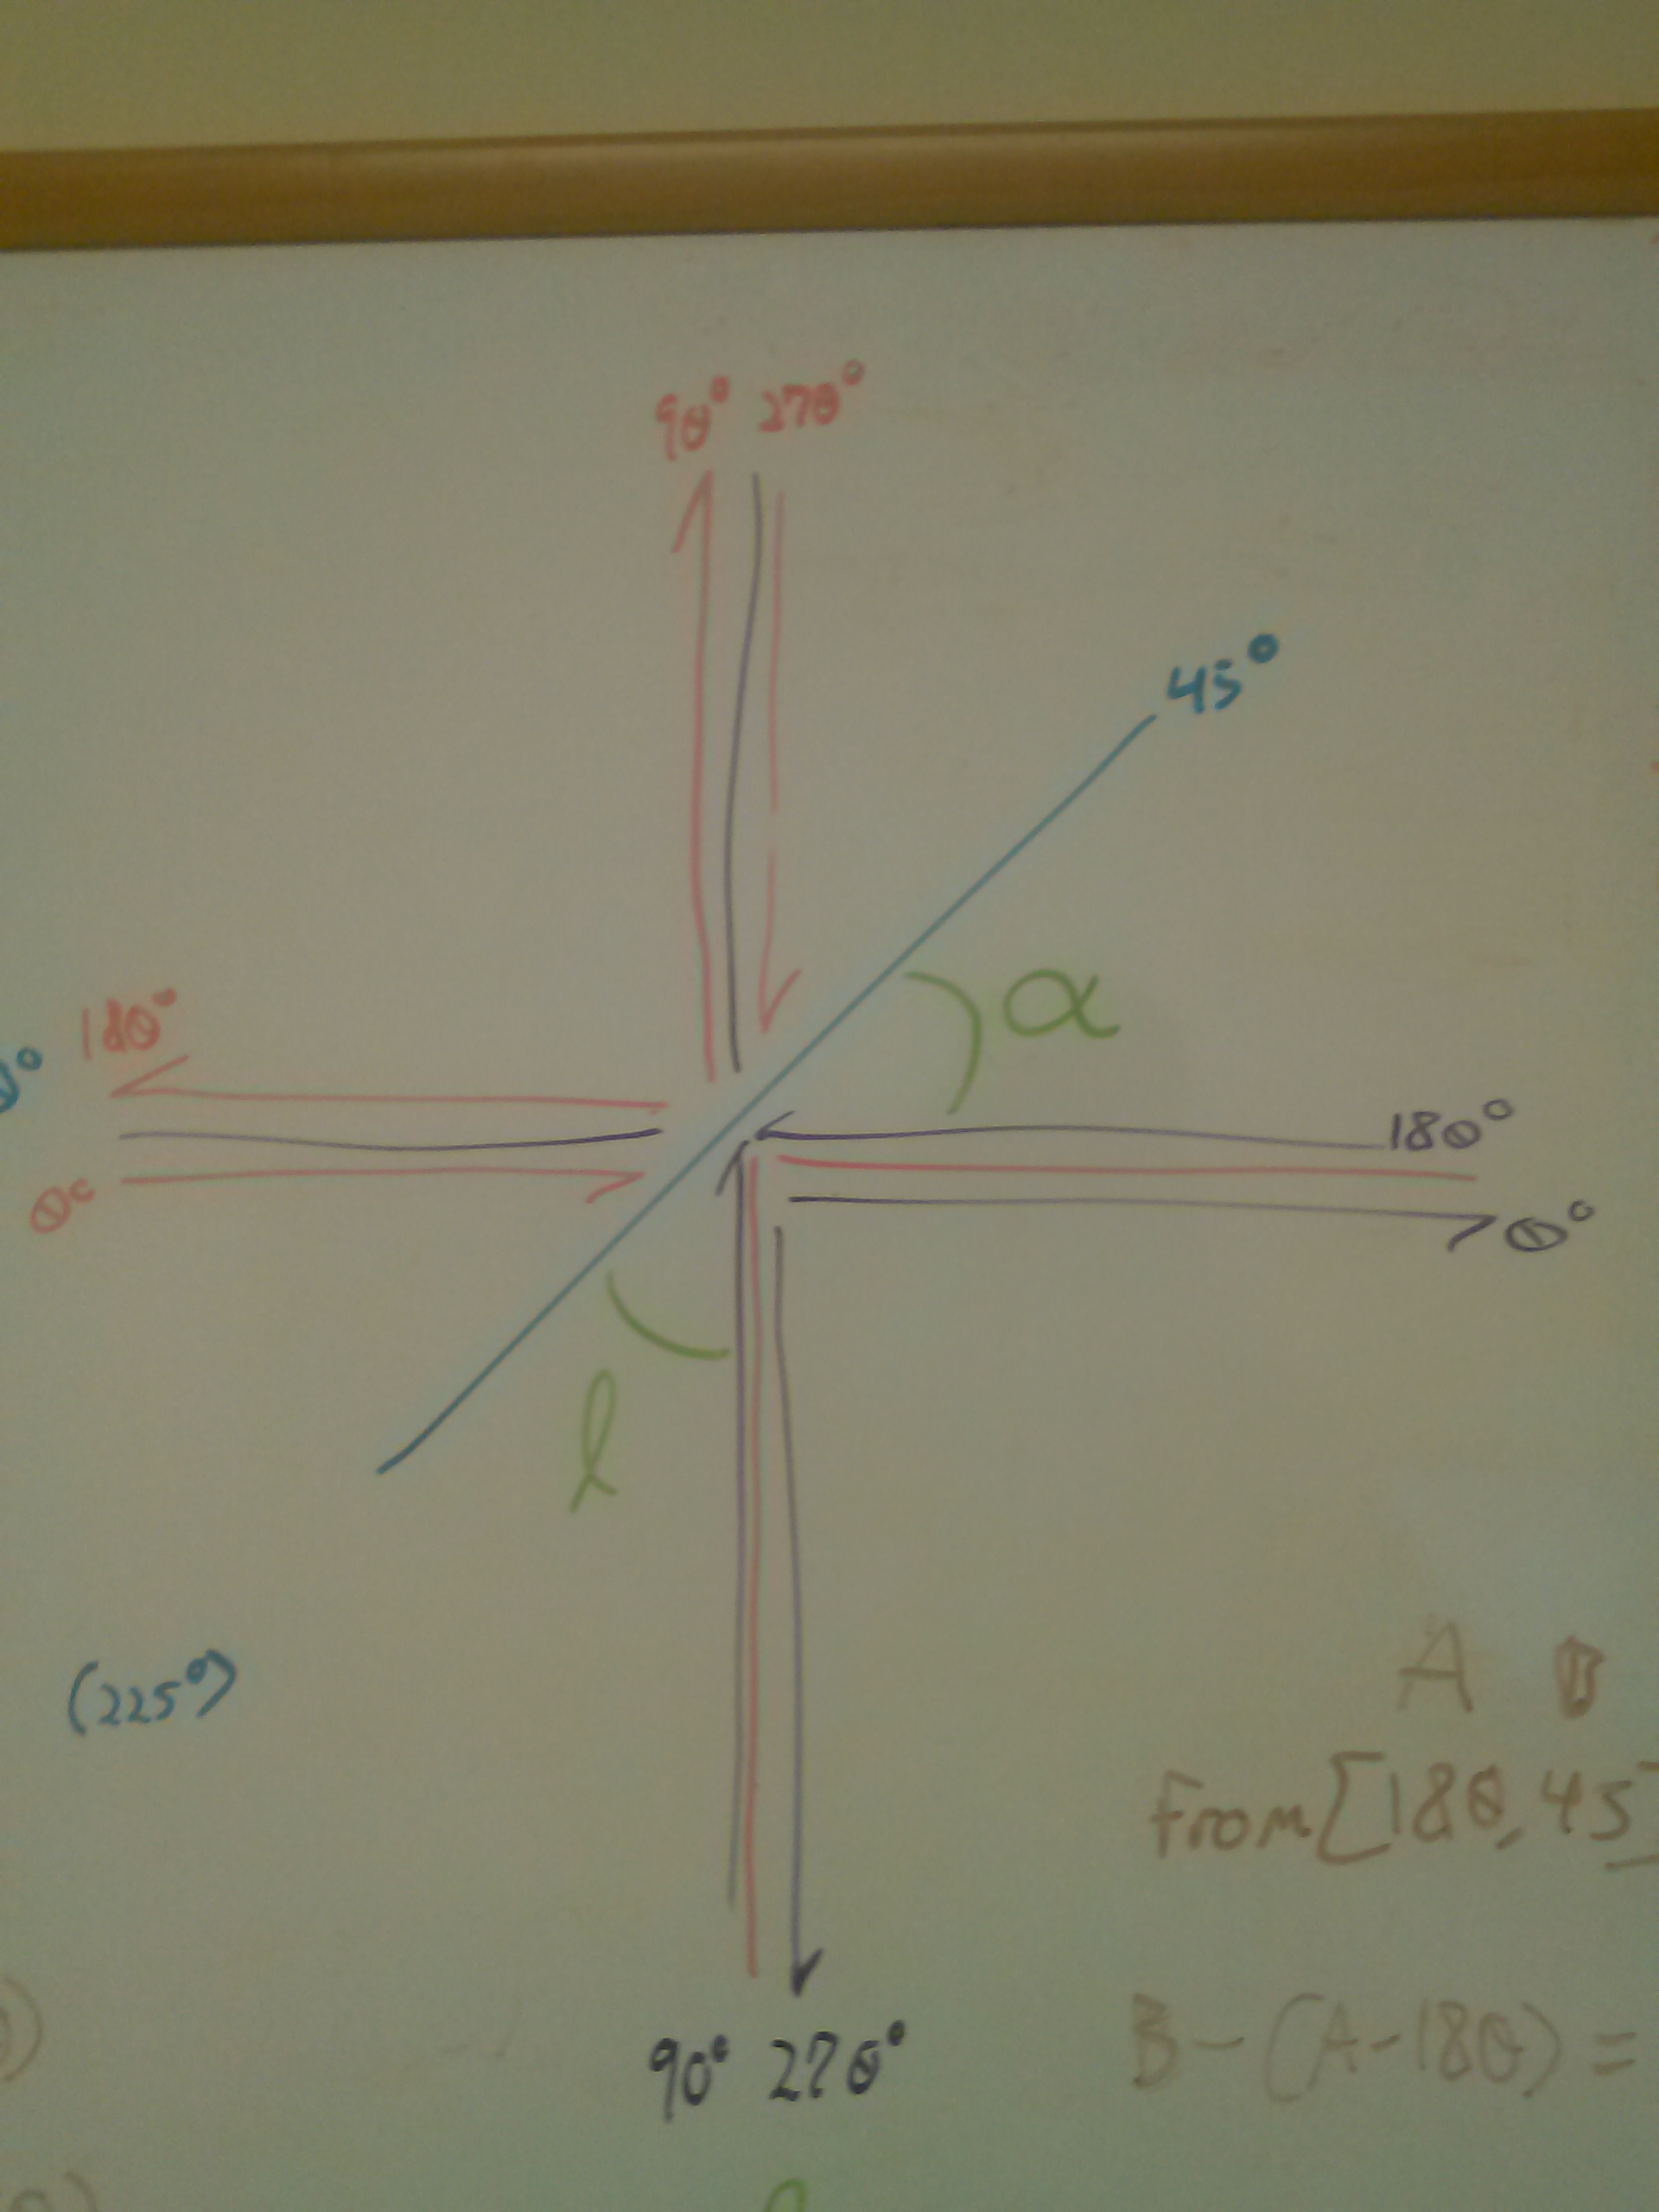 90° 270°
45°
α
180°
180°
0°
0°
l
(225°)
A B
From [180, 45
B - (A - 180) =
90° 270°